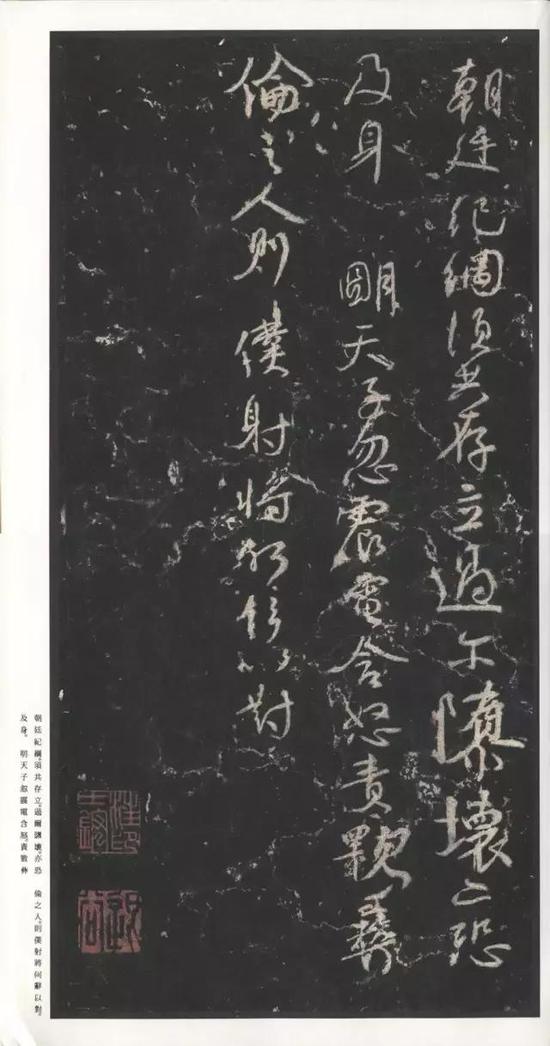 朝廷紀綱須共存立過尓隳壞亦恐
及身 明天子忽震電含怒責斁彝
倫之人則 僕射將何辭以對
朝廷紀綱。須共存立。過爾隳壞。亦恐
及身。 明天子忽震電含怒。責斁彝
倫之人。則僕射將何辭以對。